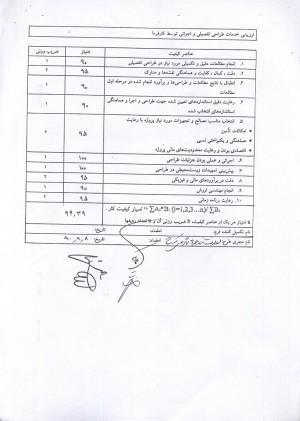 ارزیابی خدمات طراحی تفصیلی و اجرائی توسط کارفرما
عناصر کیفیت امتیاز ضریب وزنی
۱. انجام مطالعات دقیق و تکمیلی مورد نیاز در طراحی تفصیلی ۹۰ ۱
۲. دقت، کمال، کفایت و هماهنگی نقشه‌ها و مدارک ۹۵ ۲
۳. انطباق با نتایج مطالعات و بررسی‌ها و برآورد انجام شده در مرحله اول مطالعات ۹۰ ۱
۴. رعایت دقیق استانداردهای تعیین شده جهت طراحی و اجرا و هماهنگی استانداردهای انتخاب شده ۹۰ ۱
۵. انتخاب مناسب مصالح و تجهیزات مورد نیاز پروژه با رعایت ۹۵ ۲
• امکانات تأمین
• هماهنگی و یکنواختی نسبی
• اقتصادی بودن و رعایت محدودیت‌های مالی پروژه
۶. اجرائی و عملی بودن جزئیات طراحی ۱۰۰ ۱
۷. پیش‌بینی تمهیدات زیست‌محیطی در طراحی ۱۰۰
۸. دقت در برآوردهای مالی و فیزیکی ۹۵ ۲
۹. انجام مهندسی ارزش ۹۰ ۱
۱۰. رعایت برنامه زمانی ۹۵ ۲
امتیاز کیفیت کار
نام تکمیل کننده فرم: امضاء: تاریخ
نام مجری طرح: امضاء: تاریخ